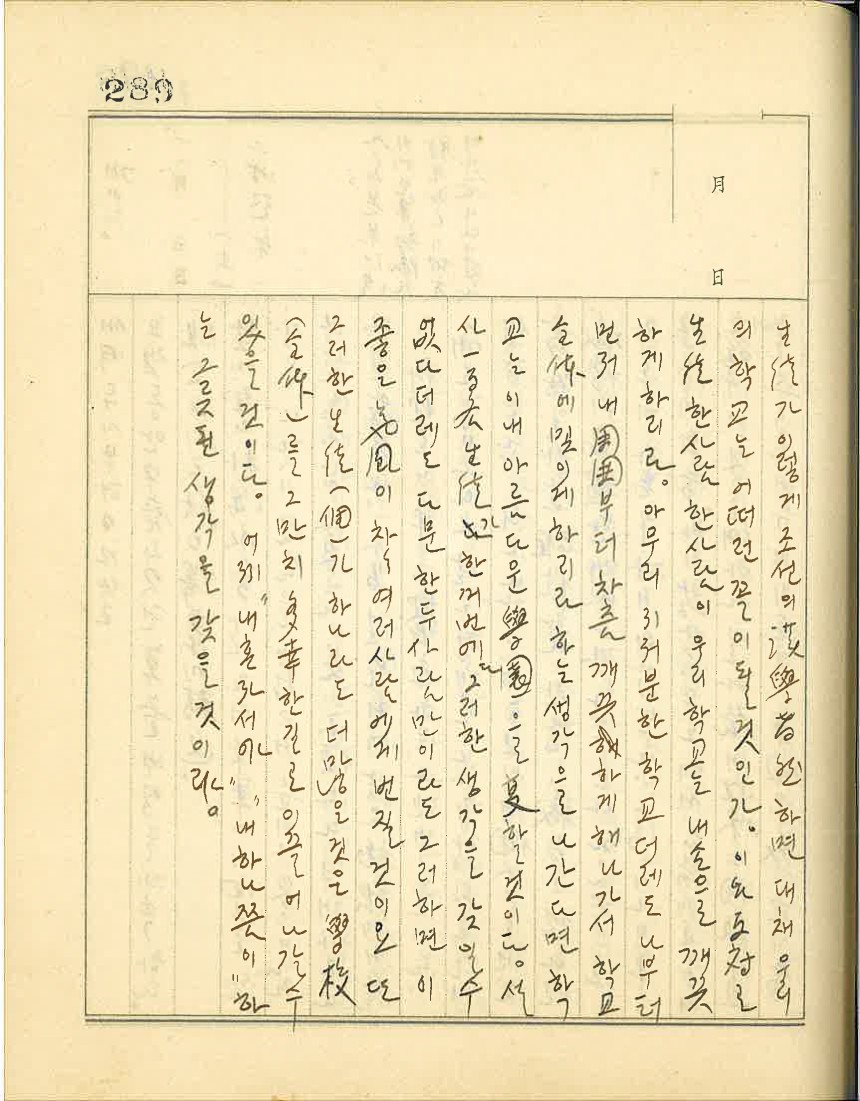 289
月
日
生徒가 이렇게 조선의 漢學者然하면 대채 우리
의 학교는 어떠런 꼴이 될 것인가。이와 反対로
生徒 한사람 한사람이 우리 학교를 내 손으로 깨끗
하게 하리라。아무리 지저분한 학교더레도 나부터
먼저 내 周囲부터 차츰 깨끗하게 해나가서 학교
全体에 및이게 하리라 하는 생각으로 나간다면 학
교는 이내 아름다운 學園으로 変할 것이다。설
사 一百名 生徒가 한꺼번에 다 그러한 생각을 갖일 수
없다더레도 다문 한두 사람만이라도 그러하면 이
좋은 氣風이 차차 여러사람에게 번질 것이오 또
그러한 生徒(個)가 하나라도 더 많을 것은 學校
(全体)를 그만치 多幸한 길로 잇끌어 나갈 수
있을 것이다。어찌 "내 혼자서야" "내 하나쯤이"하
는 그릇된 생각을 갖을 것이랴。